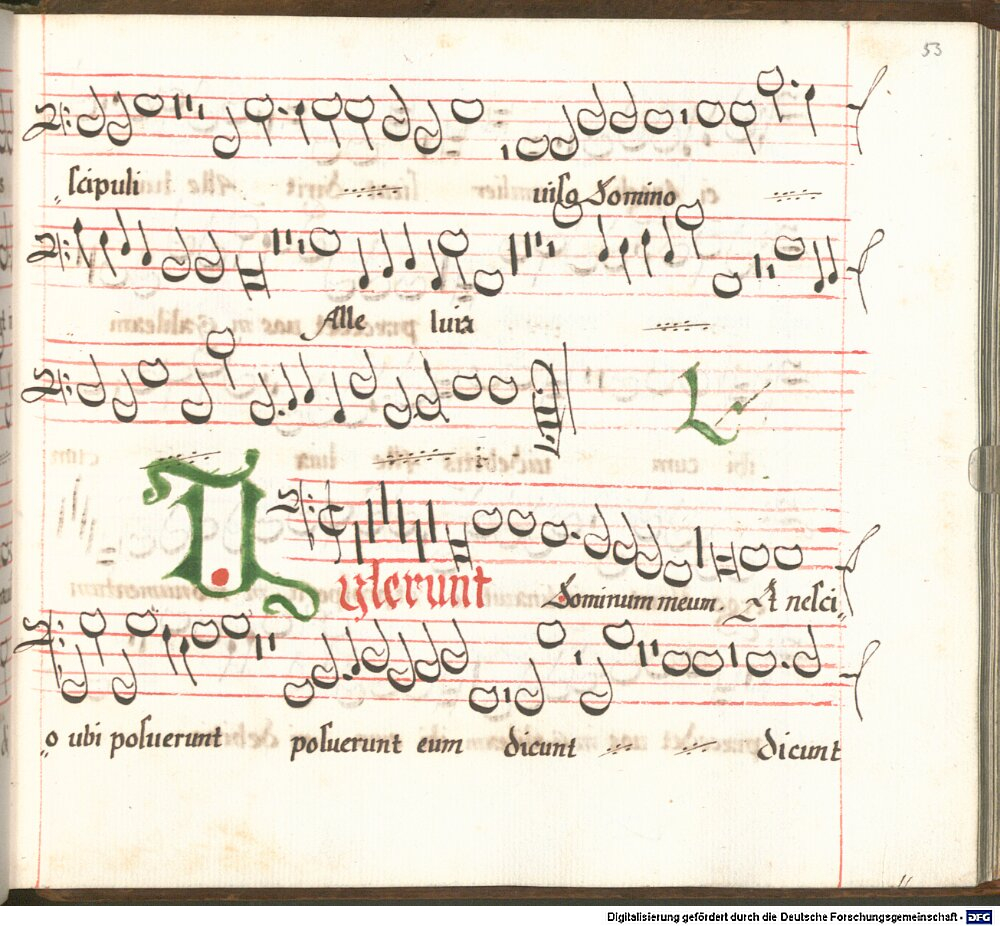 53
scipuli viso Domino
Alle luia
Tulerunt Dominum meum. Et nesci
o ubi posuerunt posuerunt eum dicunt dicunt
Digitalisierung gefördert durch die Deutsche Forschungsgemeinschaft - DFG